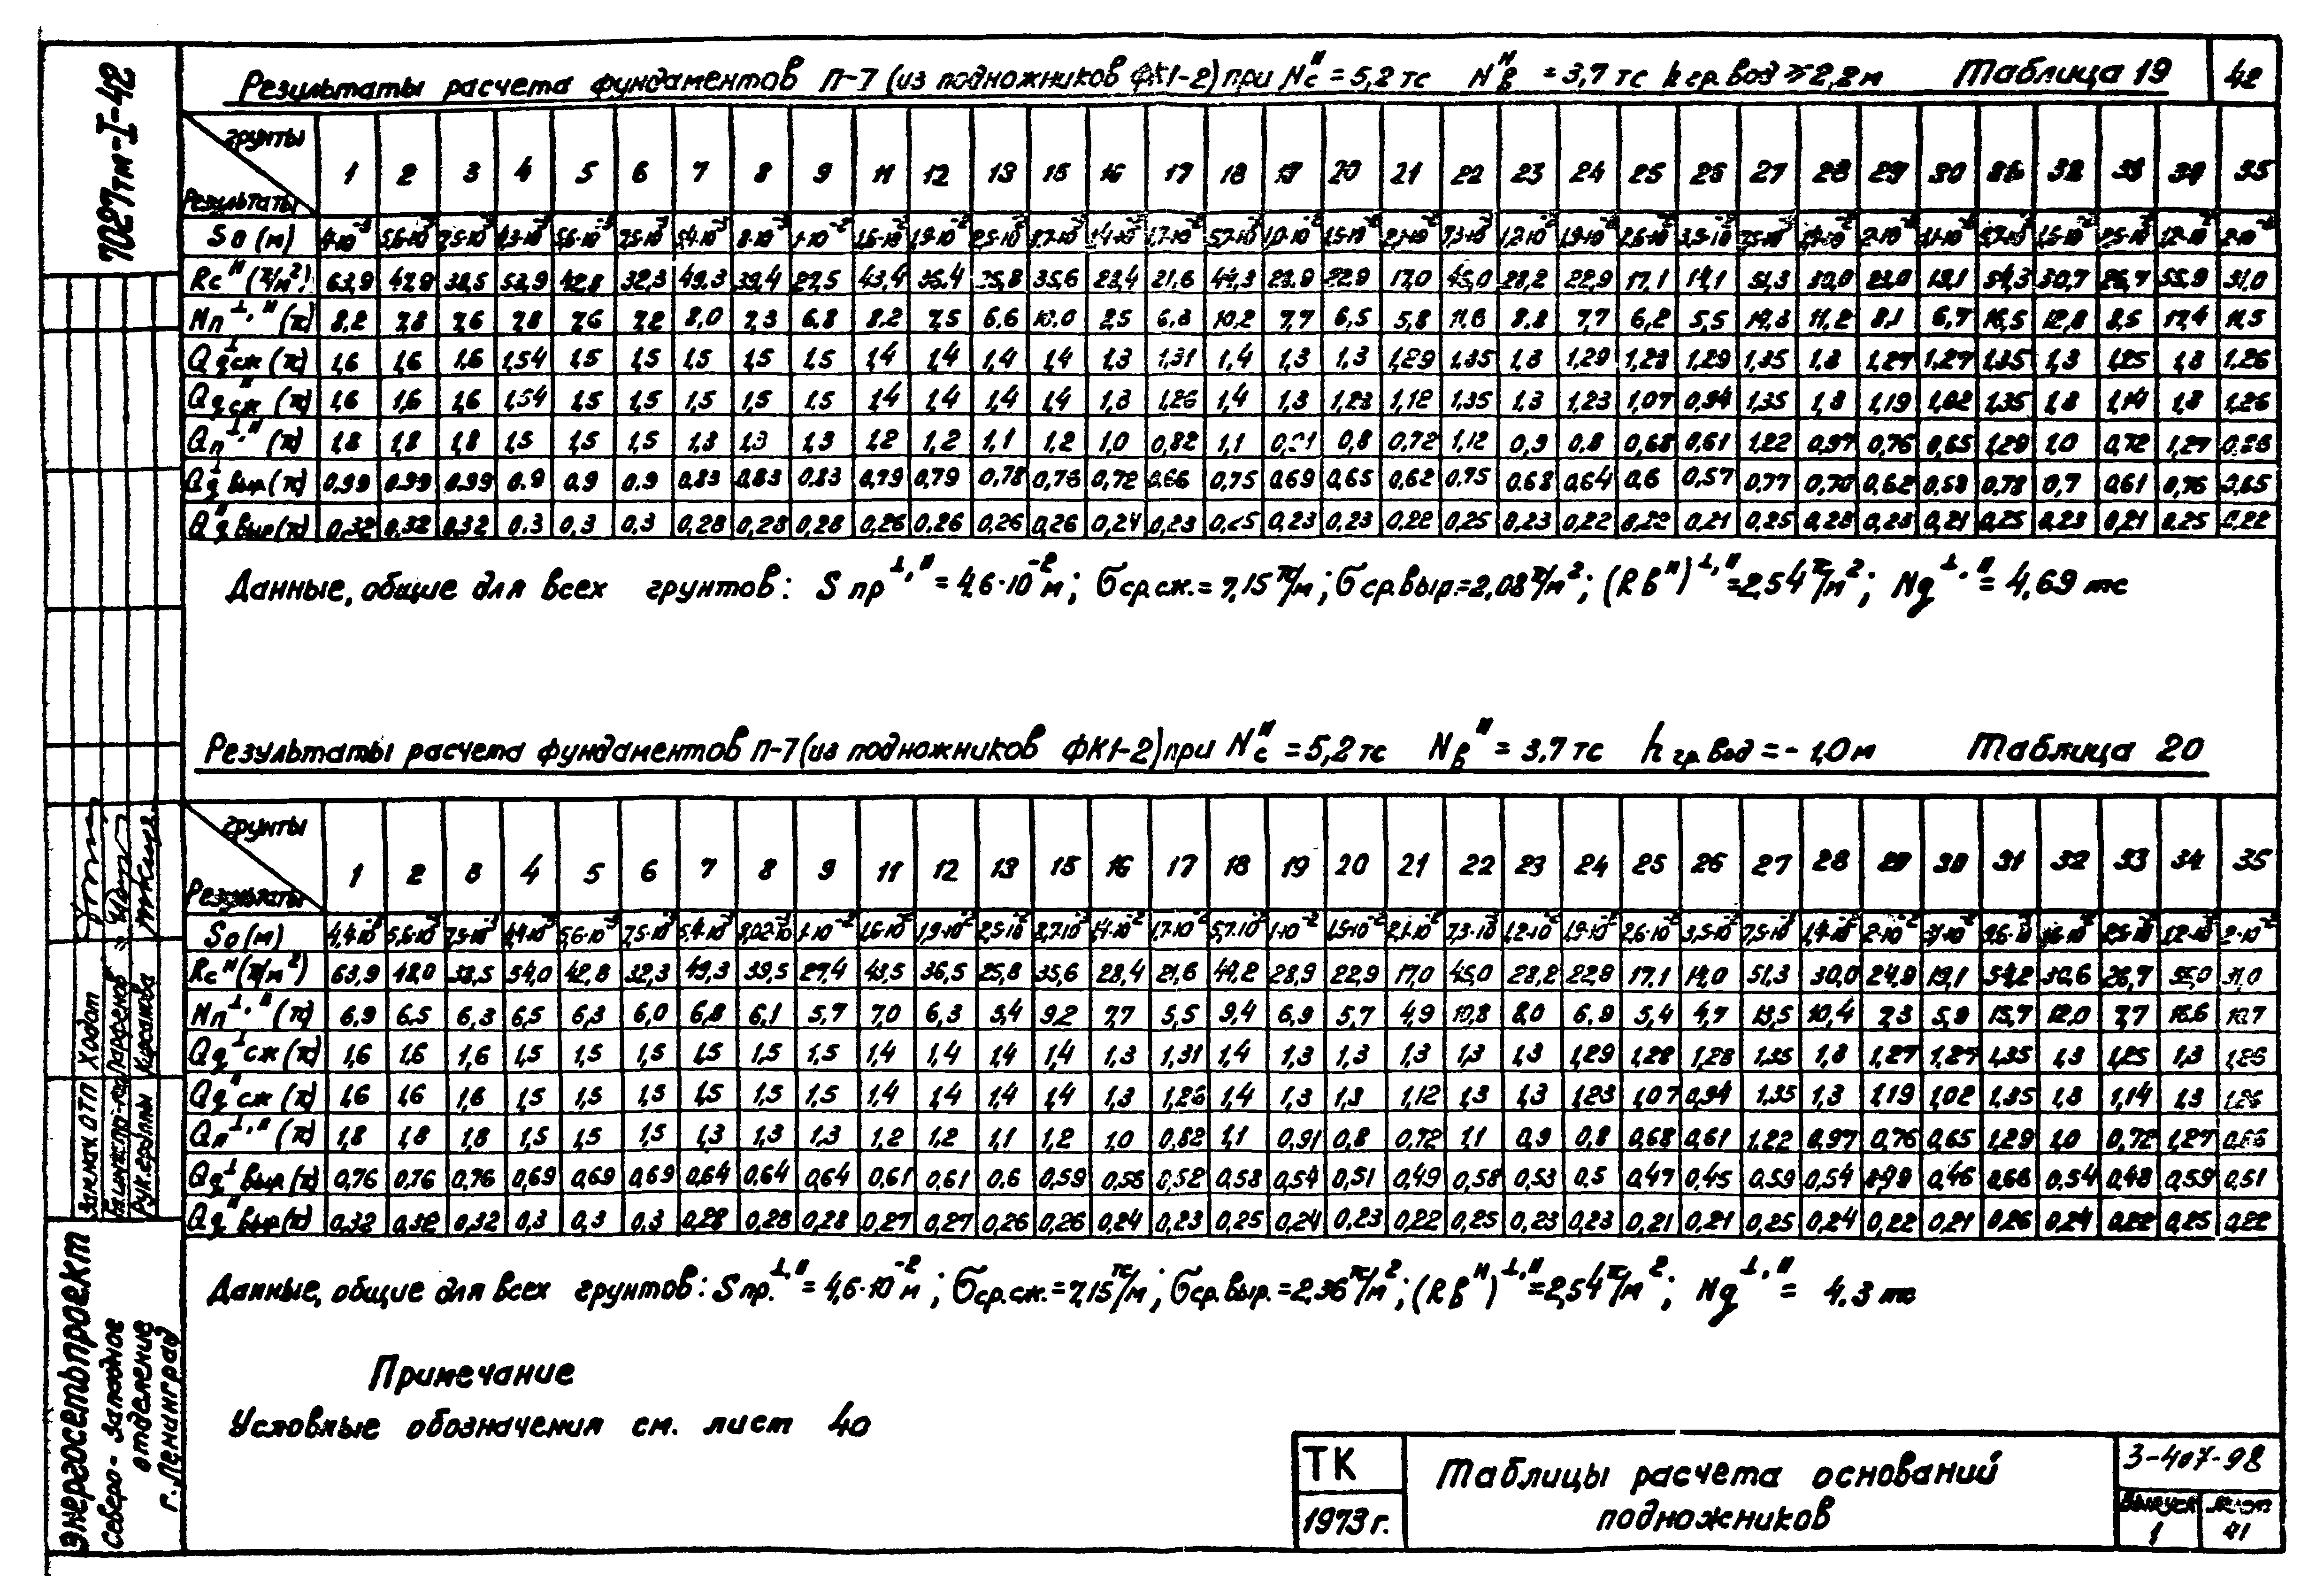 Результаты расчета фундаментов П-7 (из подножников ФК1-2) при Nсᴴ = 5,2 тс Nвᴴ = 3,7 тс h гр.вод ≥ 2,2 м Таблица 19 42
7027тм-I-42
грунты Результаты 1 2 3 4 5 6 7 8 9 11 12 13 15 16 17 18 19 20 21 22 23 24 25 26 27 28 29 30 31 32 33 34 35
Sо (м)
Rсᴴ (т/м²) 63,9 47,9 38,5 53,9 42,8 32,3 49,3 39,4 27,5 43,4 36,4 25,8 35,6 28,4 21,6 44,3 28,9 22,9 17,0 45,0 28,2 22,9 17,1 14,1 51,3 30,0 19,1 54,3 30,7 26,7 55,9 31,0
Nп⊥,ıı (т) 8,2 7,8 7,6 7,8 7,6 7,2 8,0 7,3 6,8 8,2 7,5 6,6 10,2 7,7 6,5 5,8 8,8 7,7 6,2 5,5 11,2 8,1 6,7 16,5 12,8 8,5 17,4 11,5
Qg⊥сж (т) 1,6 1,6 1,6 1,54 1,5 1,5 1,5 1,5 1,5 1,4 1,4 1,4 1,4 1,3 1,31 1,4 1,3 1,3 1,29 1,35 1,3 1,29 1,28 1,29 1,35 1,3 1,27 1,27 1,35 1,3 1,25 1,3 1,26
Qgııсж (т) 1,6 1,6 1,6 1,54 1,5 1,5 1,5 1,5 1,5 1,4 1,4 1,4 1,4 1,3 1,26 1,4 1,3 1,23 1,12 1,35 1,3 1,23 1,07 0,94 1,35 1,3 1,19 1,02 1,35 1,3 1,14 1,3 1,26
Qп⊥,ıı (т) 1,8 1,8 1,8 1,5 1,5 1,5 1,3 1,3 1,3 1,2 1,2 1,1 1,2 1,0 0,82 1,1 0,91 0,8 0,72 1,12 0,9 0,8 0,68 0,61 1,22 0,97 0,76 0,65 1,29 1,0 0,72 1,27
Qg⊥выр (т) 0,99 0,99 0,99 0,9 0,9 0,9 0,83 0,83 0,83 0,79 0,79 0,78 0,76 0,72 0,66 0,75 0,69 0,65 0,62 0,75 0,68 0,64 0,6 0,57 0,77 0,70 0,62 0,78 0,7 0,61 0,76 0,65
Qgııвыр (т) 0,32 0,32 0,32 0,3 0,3 0,3 0,28 0,28 0,28 0,26 0,26 0,26 0,26 0,24 0,23 0,25 0,23 0,23 0,22 0,25 0,23 0,22 0,22 0,21 0,25 0,23 0,23 0,21 0,25 0,23 0,21 0,25 0,22
Данные, общие для всех грунтов: Sпр⊥,ıı = 4,6·10⁻² м; σср.сж. = 7,15 тс/м; σср.выр. = 2,08 т/м²; (Rвᴴ)⊥,ıı = 2,54 т/м²; Ng⊥,ıı = 4,69 тс
Результаты расчета фундаментов П-7 (из подножников ФК1-2) при Nсᴴ = 5,2 тс Nвᴴ = 3,7 тс h гр.вод = -1,0 м Таблица 20
грунты Результаты 1 2 3 4 5 6 7 8 9 11 12 13 15 16 17 18 19 20 21 22 23 24 25 26 27 28 29 30 31 32 33 34 35
Sо (м)
Rсᴴ (т/м²) 63,9 48,0 38,5 54,0 42,8 32,3 49,3 39,5 27,4 43,5 36,5 25,8 35,6 28,4 21,6 44,2 28,9 22,9 17,0 45,0 28,2 22,8 17,1 14,0 51,3 30,0 24,9 19,1 54,2 30,6 26,7 55,0 31,0
Nп⊥,ıı (т) 6,9 6,5 6,3 6,5 6,3 6,0 6,8 6,1 5,7 7,0 6,3 5,4 9,2 7,7 5,5 9,4 6,9 5,7 4,9 10,8 8,0 6,9 5,4 4,7 13,5 10,4 7,3 5,9 15,7 12,0 7,7 16,6 10,7
Qg⊥сж (т) 1,6 1,6 1,6 1,5 1,5 1,5 1,5 1,5 1,5 1,4 1,4 1,4 1,4 1,3 1,31 1,4 1,3 1,3 1,3 1,3 1,3 1,29 1,28 1,28 1,35 1,3 1,27 1,27 1,35 1,3 1,25 1,3 1,26
Qgııсж (т) 1,6 1,6 1,6 1,5 1,5 1,5 1,5 1,5 1,5 1,4 1,4 1,4 1,4 1,3 1,26 1,4 1,3 1,3 1,12 1,3 1,3 1,23 1,07 0,94 1,35 1,3 1,19 1,02 1,35 1,3 1,14 1,3 1,26
Qп⊥,ıı (т) 1,8 1,8 1,8 1,5 1,5 1,5 1,3 1,3 1,3 1,2 1,2 1,1 1,2 1,0 0,82 1,1 0,91 0,8 0,72 1,1 0,9 0,8 0,68 0,61 1,22 0,97 0,76 0,65 1,29 1,0 0,72 1,27
Qg⊥выр (т) 0,76 0,76 0,76 0,69 0,69 0,69 0,64 0,64 0,64 0,61 0,61 0,6 0,59 0,56 0,52 0,58 0,54 0,51 0,49 0,58 0,53 0,5 0,47 0,45 0,59 0,54 0,46 0,54 0,48 0,59 0,51
Qgııвыр (т) 0,32 0,32 0,32 0,3 0,3 0,3 0,28 0,28 0,28 0,27 0,27 0,26 0,26 0,24 0,23 0,25 0,24 0,23 0,22 0,25 0,23 0,23 0,21 0,21 0,25 0,24 0,22 0,21 0,26 0,24 0,22 0,25 0,22
Данные, общие для всех грунтов: Sпр.⊥,ıı = 4,6·10⁻² м; σср.сж. = 7,15 тс/м; σср.выр. = 2,36 тс/м²; (Rвᴴ)⊥,ıı = 2,54 тс/м²; Ng⊥,ıı = 4,3 тс
Примечание
Условные обозначения см. лист 40
Зам.нач. ОТП Ходот
Гл.инж.пр-та Парфенов
Рук.группы
Энергосетьпроект
Северо-Западное
отделение
г. Ленинград
ТК
1973 г.
Таблицы расчета оснований
подножников
3-407-98
Выпуск 1
лист 41